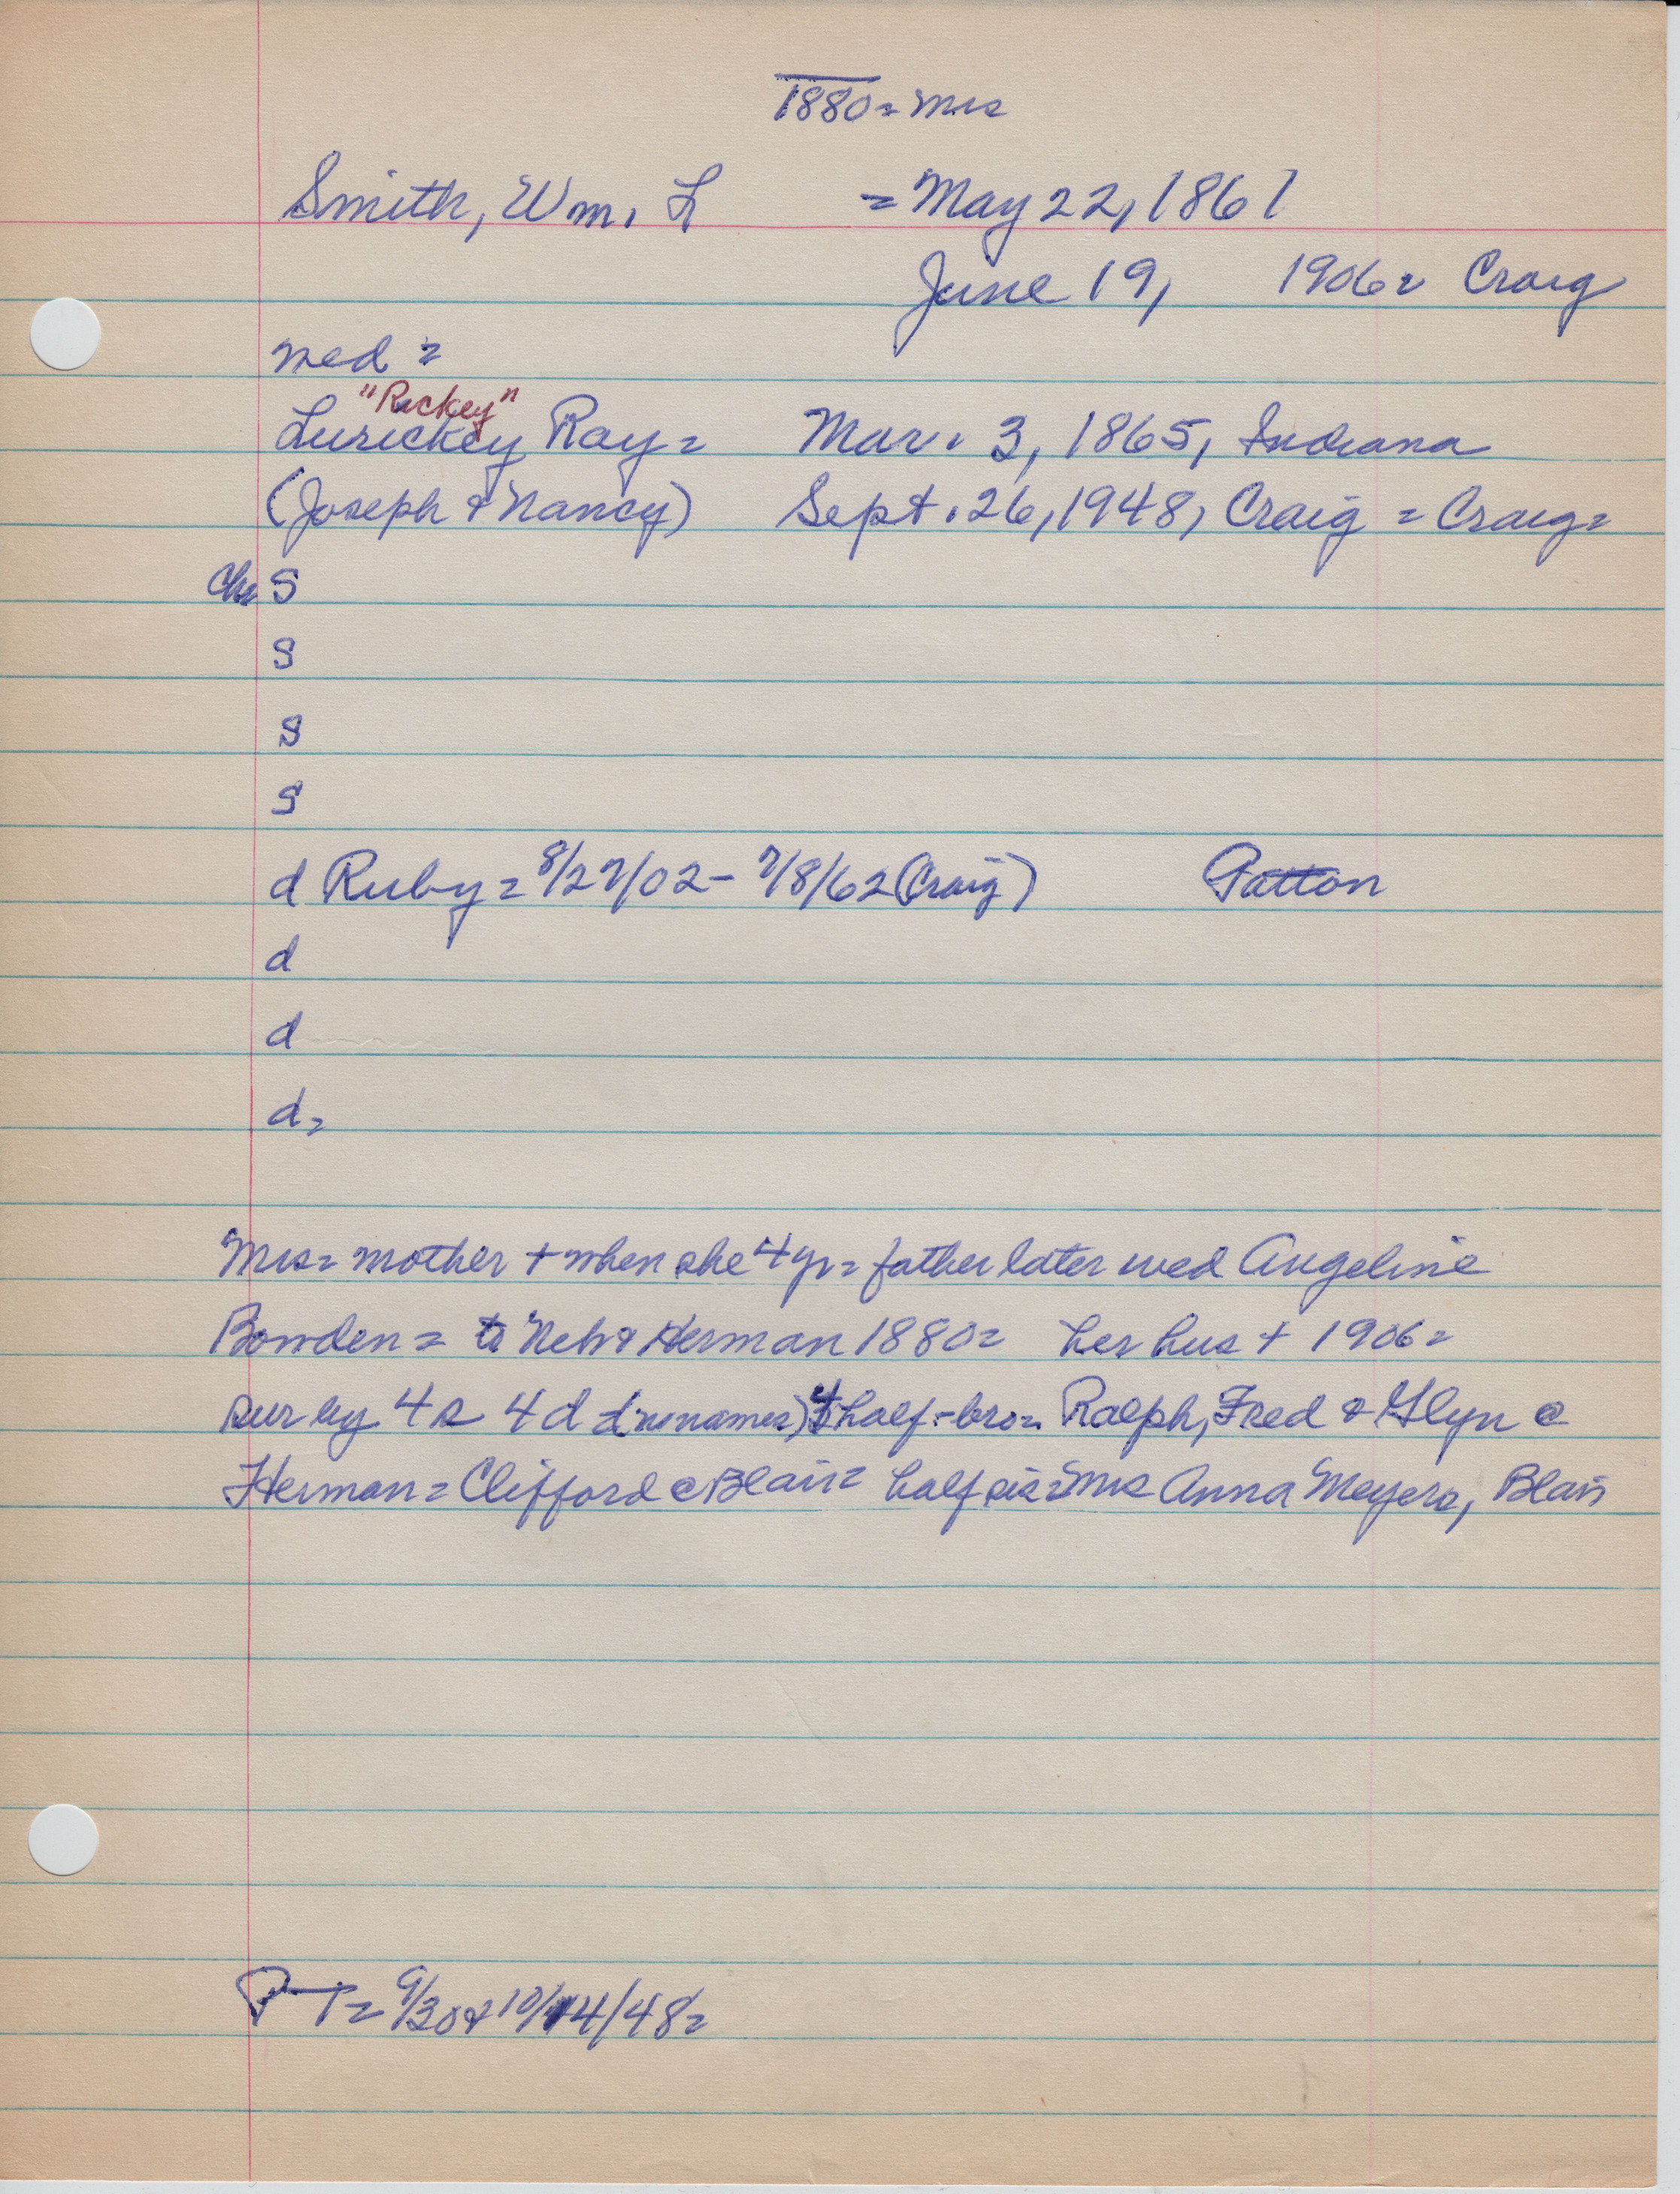 1880 = Mrs
Smith, Wm. L = May 22, 1861
June 19, 1906 = Craig
wed =
"Rickey"
Lurickey Ray = Mar. 3, 1865, Indiana
(Joseph & Nancy) Sept. 26, 1948, Craig = Craig =
Ch = S
S
S
S
d Ruby = 8/27/02 - 7/8/62 (Craig) Patton
d
d
d =
Mrs = mother + when she 4 yr = father later wed Angeline
Bowden = to Neb & Herman 1880 = her hus + 1906 =
sur by 4 s 4 d (no names) 4 half-bro = Ralph, Fred & Glyn @
Herman = Clifford @ Blair = half sis = Mrs Anna Meyers, Blair
PT = 9/30 & 10/14/48 =